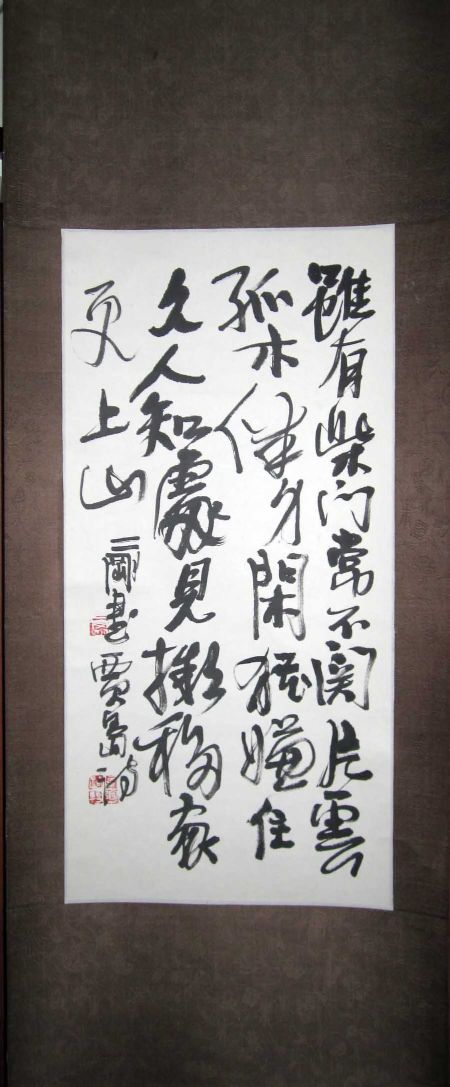 雖有柴門常不関片雲
孤木伴身閑猶嫌住
久人知處見擬移家
更上山
書賈島詩